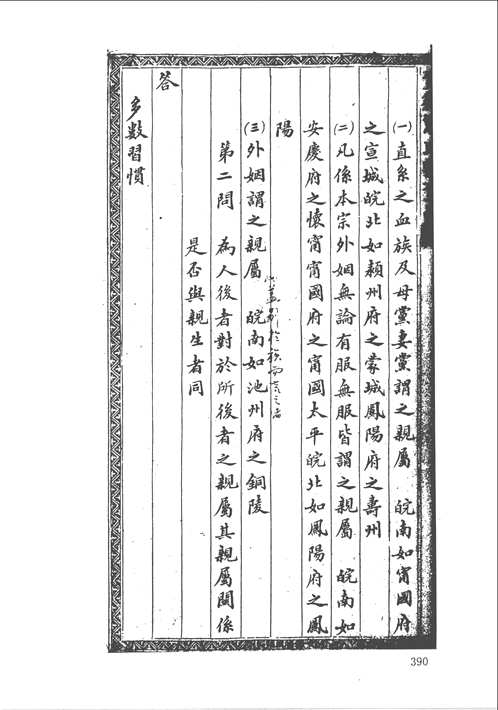 (一)直系之血族及母黨妻黨謂之親屬　皖南如甯國府
之宣城皖北如潁州府之蒙城鳳陽府之壽州
(二)凡係本宗外姻無論有服無服皆謂之親屬　皖南如
安慶府之懷甯甯國府之甯國太平皖北如鳳陽府之鳳
陽
蓋別於族而言之者
(三)外姻謂之親屬　皖南如池州府之銅陵
第二問　為人後者對於所後者之親屬其親屬關係
是否與親生者同
答
多數習慣
390